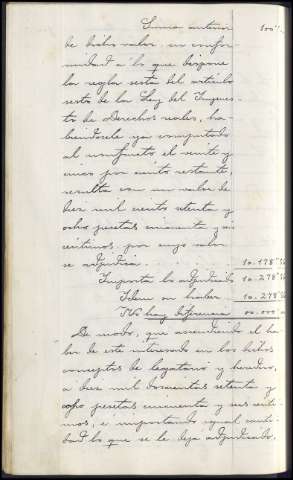 Suma anterior 100"
de dicho valor en confor-
midad á lo que dispone
la regla sesta del artículo
sesto de la Ley del Impues-
to de Derechos reales, ha-
biéndosele ya computado
al usufructo el veinte y
cinco por ciento restante,
resulta con un valor de
diez mil ciento setenta y
ocho pesetas cincuenta y seis
centimos por cuyo valor
se adjudica. 10.178"56
Importa lo adjudicado 10.278"56
Idem su haber 10.278"56
No hay diferencia 00.000
De modo, que ascendiendo el ha-
ber de este interesado en los dichos
conceptos de legatario y heredero,
a diez mil doscientas setenta y
ocho pesetas cincuenta y seis centi-
mos, e importando igual canti-
dad lo que se le deja adjudicado,